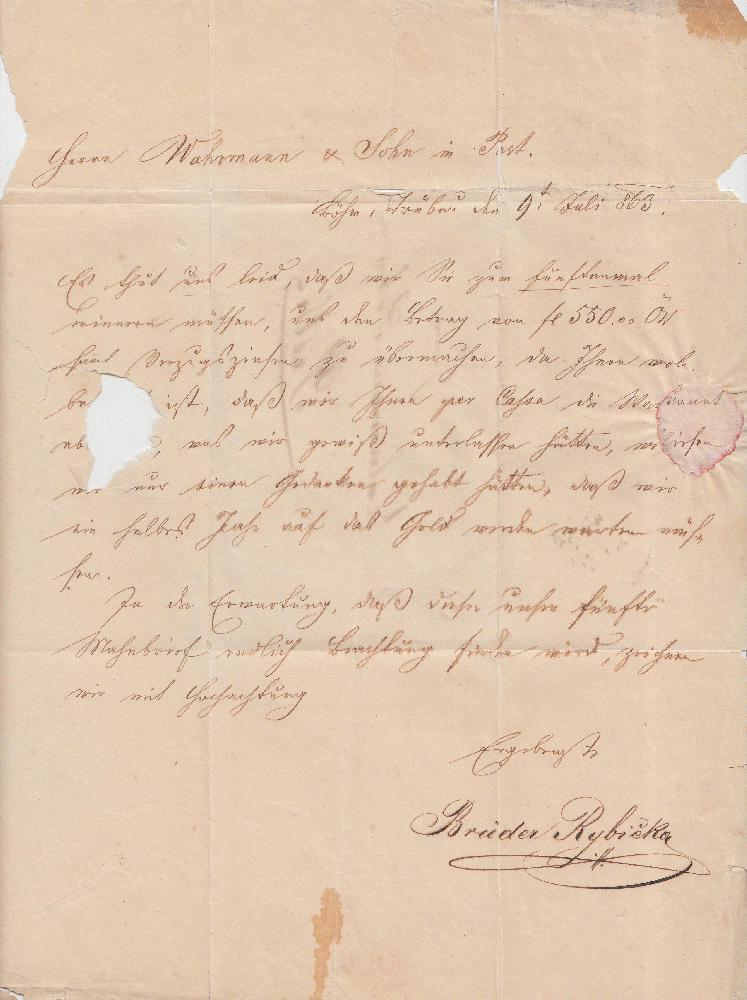 Herrn Wahrmann & Sohn in Pest.
Böhm. Trübau den 9t Juli 863.
Es thut uns leid, daß wir Sie zum fünftenmal
erinnern müssen, uns den Betrag von fl 550.00 ÖW
samt Verzugszinsen zu übermachen, da Ihnen wol
be ist, daß wir Ihnen per Cassa die
, was wir gewiß unterlassen hätten,
wir nur einen Gedanken gehabt hätten, daß wir
ein halbes Jahr auf das Geld werden warten müs-
sen.
In der Erwartung, daß dieser unser fünfte
Mahnbrief endlich Beachtung finden wird, zeichnen
wir mit Hochachtung
Ergebenst
Brüder Rybička